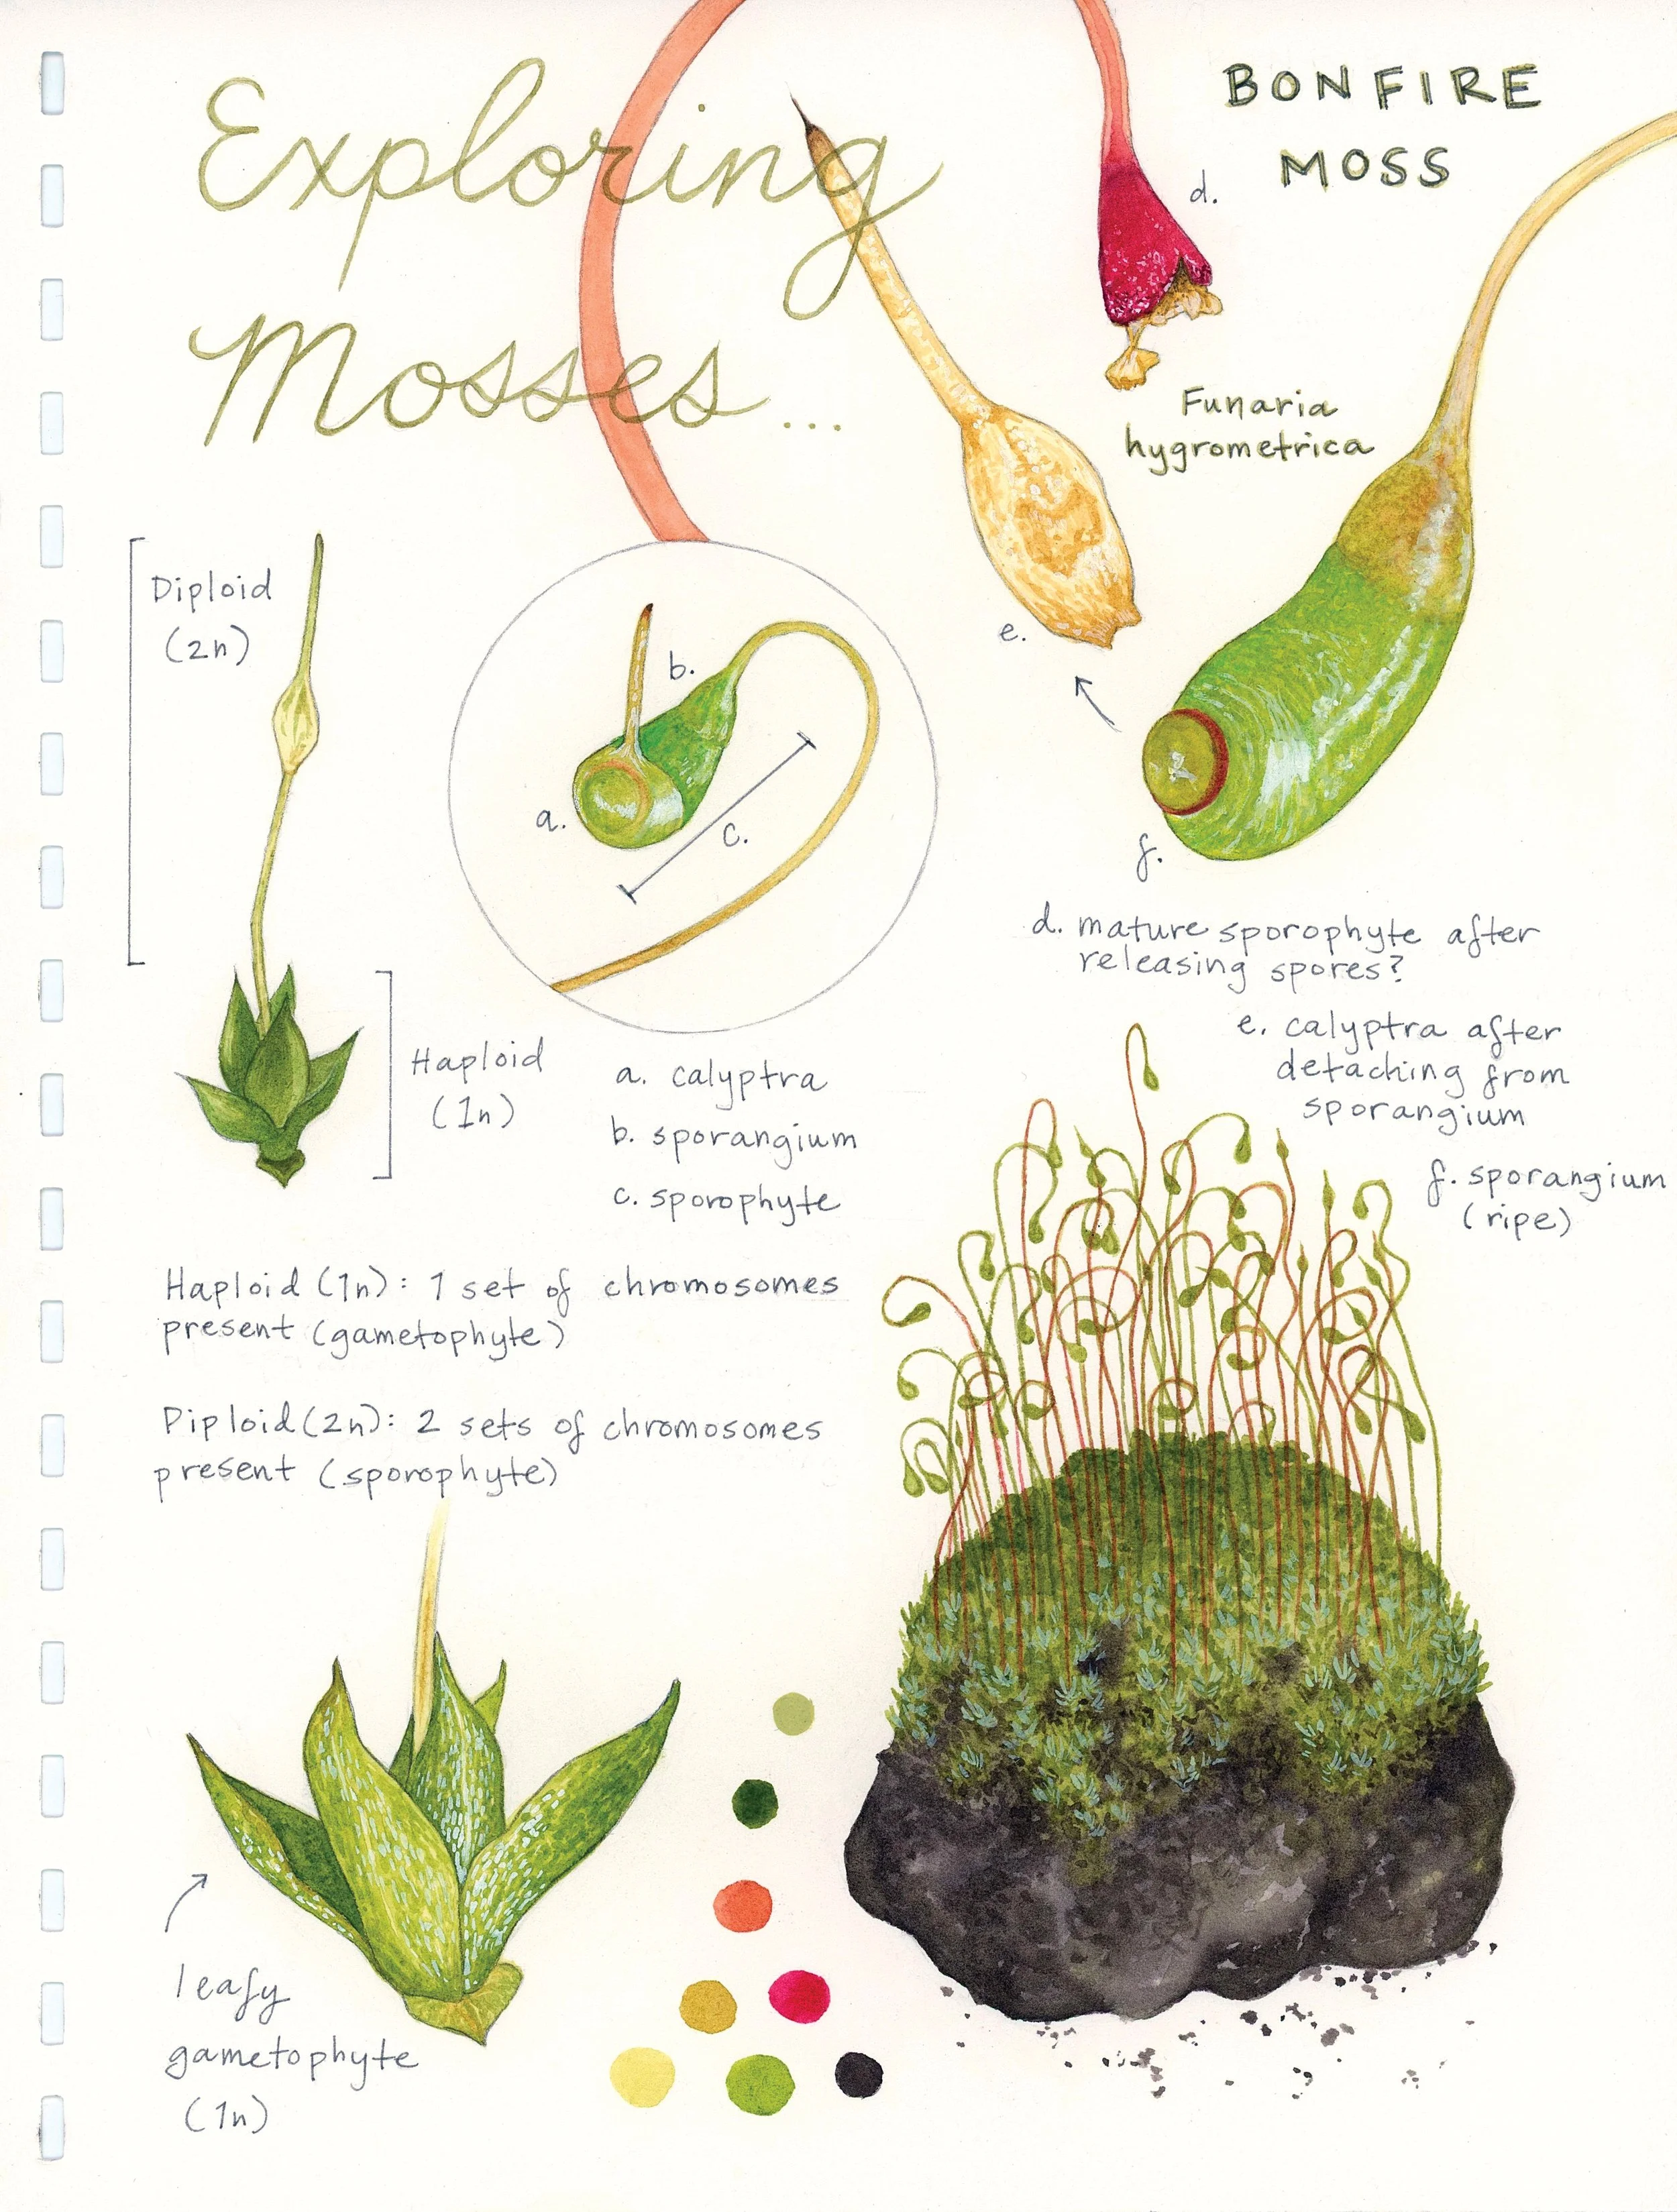 Exploring
Mosses...
BONFIRE
MOSS
d.
Funaria
hygrometrica
e.
f.
Diploid
(2n)
Haploid
(1n)
a.
b.
c.
a. calyptra
b. sporangium
c. sporophyte
d. mature sporophyte after
releasing spores?
e. calyptra after
detaching from
sporangium
f. sporangium
(ripe)
Haploid (1n): 1 set of chromosomes
present (gametophyte)
Diploid (2n): 2 sets of chromosomes
present (sporophyte)
leafy
gametophyte
(1n)